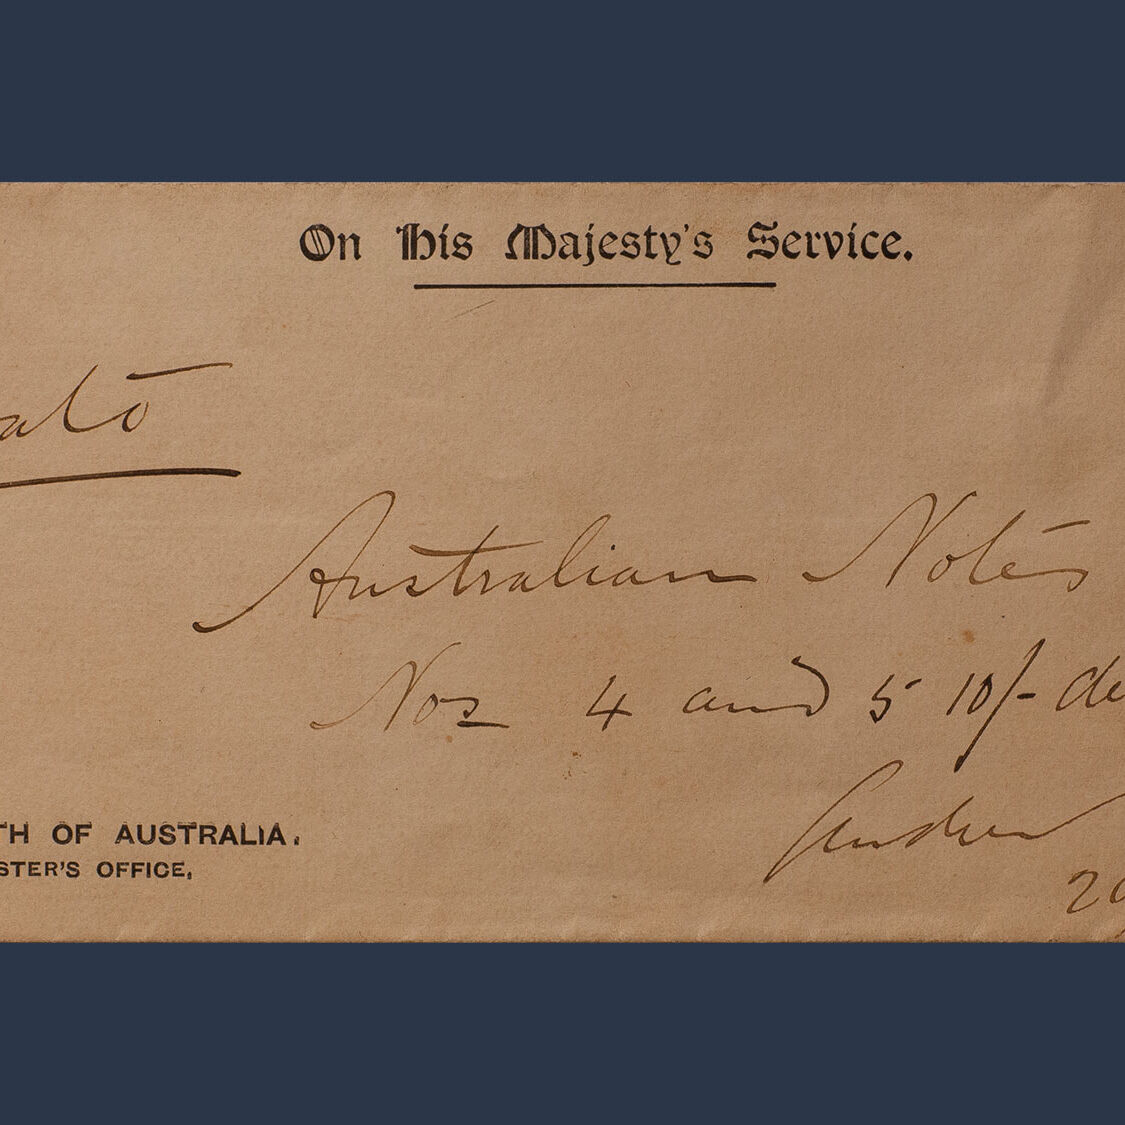 On His Majesty's Service.
Australian Notes
Nos 4 and 5 10/- de
Andrew
20
TH OF AUSTRALIA.
STER'S OFFICE,